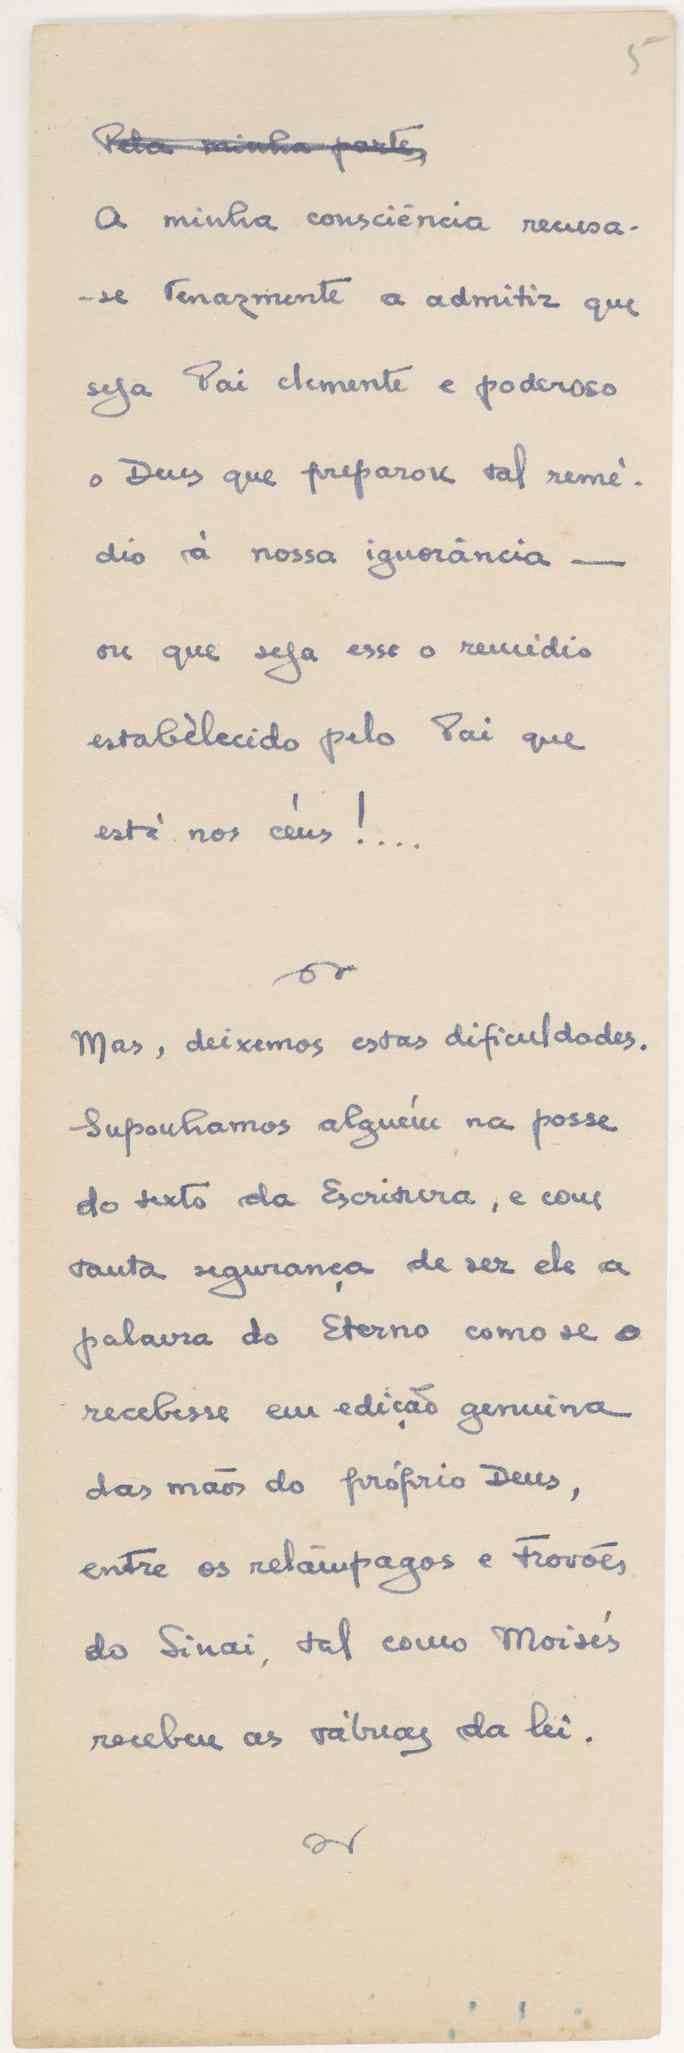 5
Pela minha parte,
A minha consciência recusa-
-se tenazmente a admitir que
seja Pai clemente e poderoso
o Deus que preparou tal remé-
dio à nossa ignorância —
ou que seja esse o remédio
estabèlecido pelo Pai que
está nos céus!....
Mas, deixemos estas dificuldades.
Suponhamos alguém na posse
do texto da Escritura, e com
tanta segurança de ser ele a
palavra do Eterno como se o
recebesse em edição genuina
das mãos do próprio Deus,
entre os relâmpagos e trovões
do Sinai, tal como Moisés
recebeu as tábuas da lei.